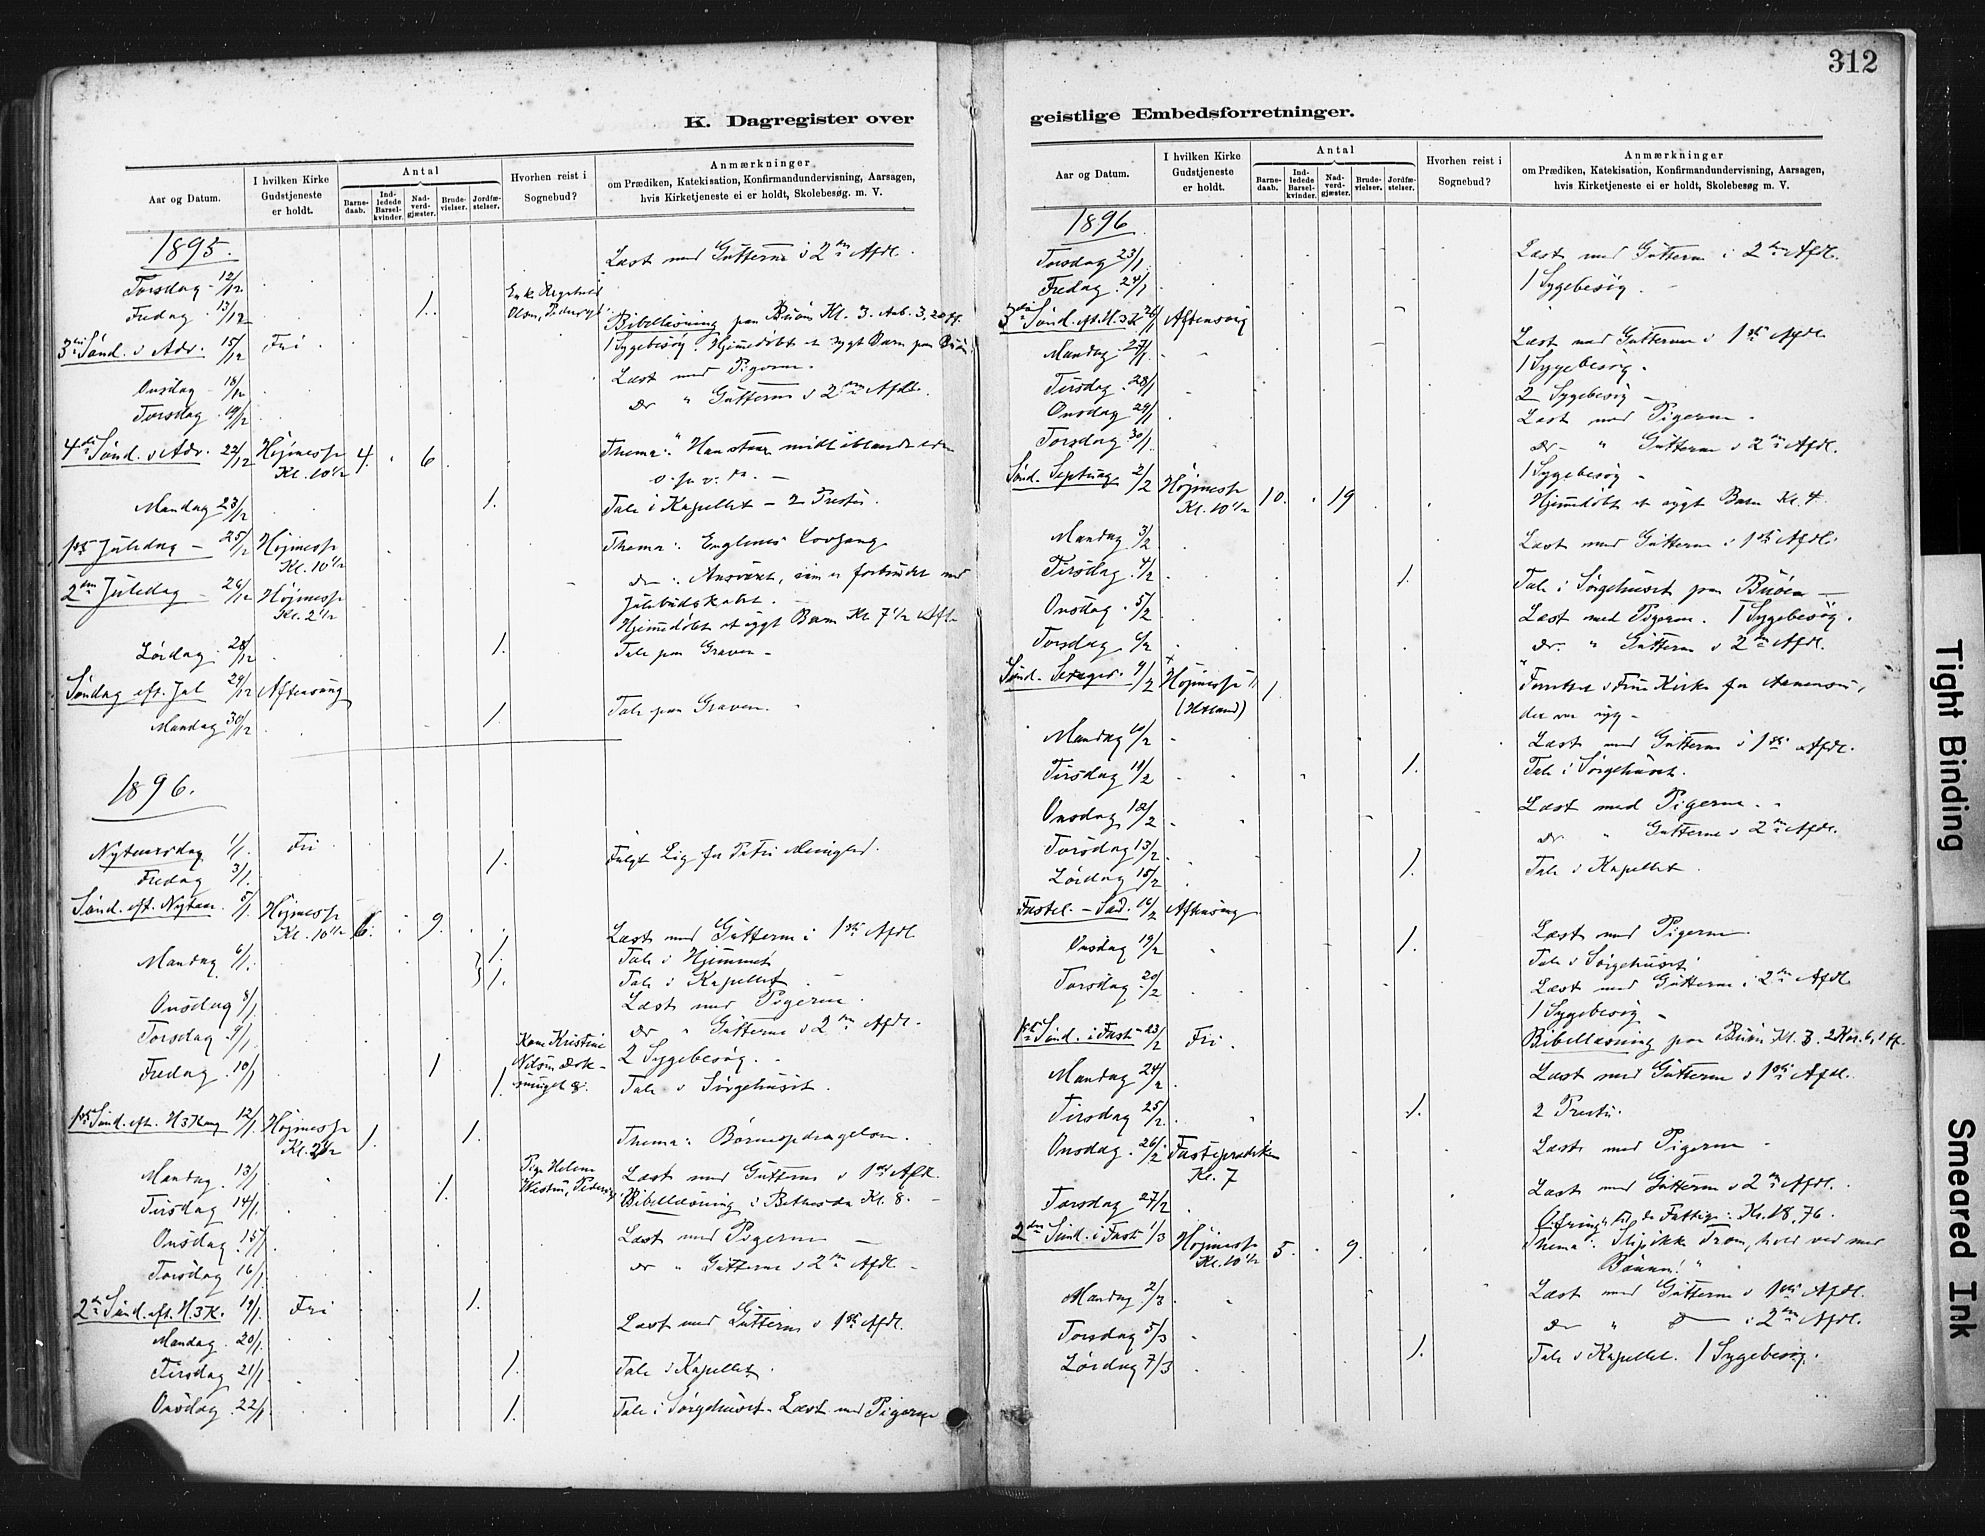 312
K. Dagregister over
Aar og Datum.
I hvilken Kirke Gudstjeneste er holdt.
Antal
Barne-daab.
Ind-ledede Barsel-kvinder.
Nad-verd-gjæster.
Brude-vielser.
Jordfæ-stelser.
Hvorhen reist i Sognebud?
Anmærkninger
om Prædiken, Katekisation, Konfirmandundervisning, Aarsagen,
hvis Kirketjeneste ei er holdt, Skolebesøg. m. V.
1895.
Læst med Gutterne i 2den Afdl.
Torsdag 12/12
Fredag 13/12 1.
Bibellæsning paa Buøen Kl. 3. Aab. 3, 20 ff.
3die Sønd. i Adv. 15/12 Fri
1 Sygebesøg. Hjemmedøbt et sygt Barn paa Buøen
Læst med Pigerne.
Onsdag 18/12
do " Gutterne i 2den Afdl.
Torsdag 19/12
4de Sønd. i Adv. 22/12 Højmesse Kl. 10 1/2 4. 6
Thema: "Han staar midt iblandt eder
Mandag 23/12 1. Tale i Kapellet
1ste Juledag 25/12 Højmesse Kl. 10 1/2
Thema: Englenes Lovsang
2den Juledag 26/12 Højmesse Kl. 2 1/2
do : Ansvaret, som er forbundet med
Julebudskabet.
Hjemmedøbt et sygt Barn Kl. 7 1/2 Aft.
Lørdag 28/12 1. Tale paa Graven
Søndag eft. Jul 29/12 Aftensang
Mandag 30/12 1. Tale paa Graven.
1896.
Nytaarsdag 1/1. Fri
Fredag 3/1. 1. Fulgt Lig fra Petri Menighed.
Sønd. eft. Nytaar 5/1. Højmesse Kl. 10 1/2 6. 9.
Læst med Gutterne i 1ste Afdl.
Mandag 6/1. 1. Tale i Hjemmet
1. Tale i Kapellet
Onsdag 8/1 Læst med Pigerne.
Torsdag 9/1. do " Gutterne i 2den Afdl.
Fredag 10/1 1 2 Sygebesøg.
1. Tale i Sørgehuset.
1ste Sønd. eft. H3Kong 12/1. Højmesse 1. 1.
Thema: Børneopdragelsen.
Mandag 13/1 Læst med Gutterne i 1ste Afdl.
Tirsdag 14/1. 1. Bibellæsning i Bethesda Kl. 8.
Onsdag 15/1 Læst med Pigerne
Torsdag 16/1. do " Gutterne i 2den Afdl.
2den Sønd. eft. H.3K. 19/1. Fri 1.
Læst med Gutterne i 1ste Afdl.
Mandag 20/1.
Tirsdag 21/1 1. Tale i Kapellet.
Onsdag 22/1. 1. Tale i Sørgehuset. Læst med Pigerne
geistlige Embedsforretninger.
Aar og Datum.
I hvilken Kirke Gudstjeneste er holdt.
Antal
Barne-daab.
Ind-ledede Barsel-kvinder.
Nad-verd-gjæster.
Brude-vielser.
Jordfæ-stelser.
Hvorhen reist i Sognebud?
Anmærkninger
om Prædiken, Katekisation, Konfirmandundervisning, Aarsagen,
hvis Kirketjeneste ei er holdt, Skolebesøg m. V.
1896
Torsdag 23/1. Læst med Gutterne i 2den Afdl.
Fredag 24/1 1 Sygebesøg.
3die Sønd. eft. H.3K 26/1 Aftensang
Mandag 27/1. Læst med Gutterne i 1ste Afdl.
Tirsdag 28/1 1 Sygebesøg.
Onsdag 29/1 2 Sygebesøg
Læst med Pigerne
Torsdag 30/1. do " Gutterne i 2den Afdl.
1 Sygebesøg
Sønd. Septuag. 2/2 Højmesse Kl. 10 1/2 10. 19
Hjemmedøbt et sygt Barn Kl. 4.
Mandag 3/2 Læst med Gutterne i 1ste Afdl.
Tirsdag 4/2 1. Tale i Sørgehuset paa Buøen
Onsdag 5/2 Læst med Pigerne. 1 Sygebesøg.
Torsdag 6/2 do. " Gutterne i 2den Afdl.
Sønd. Sexages. 9/2 Højmesse 1.
der var syg
Mandag 10/2 Læst med Gutterne i 1ste Afdl.
Tirsdag 11/2 1. Tale i Sørgehuset.
Onsdag 12/2 Læst med Pigerne.
Torsdag 13/2 do " Gutterne i 2den Afdl.
Lørdag 15/2 1. Tale i Kapellet
Fastel. - Sønd. 16/2 Aftensang
Onsdag 19/2 1. Læst med Pigerne
Tale i Sørgehuset
Torsdag 20/2 Læst med Gutterne i 2den Afdl.
1 Sygebesøg
1ste Sønd. i Fast 23/2 Fri.
Bibellæsning paa Buøen Kl. 3. 2 Kor. 6, 1 ff.
Mandag 24/2 Læst med Gutterne i 1ste Afdl.
Tirsdag 25/2. 1.
Onsdag 26/2 Fasteprædiken Kl. 7
Læst med Pigerne
Torsdag 27/2 Læst med Gutterne i 2den Afdl.
Ofring til de Fattige: Kr. 18,76.
2den Sønd. i Fast 1/3 Højmesse Kl. 10 1/2 5. 9.
Bønnen!"
Mandag 2/3 Læst med Gutterne i 1ste Afdl.
Torsdag 5/3 do " do i 2den Afdl.
Lørdag 7/3 1. Tale i Kapellet. 1 Sygebesøg.
Tight Binding
Smeared Ink